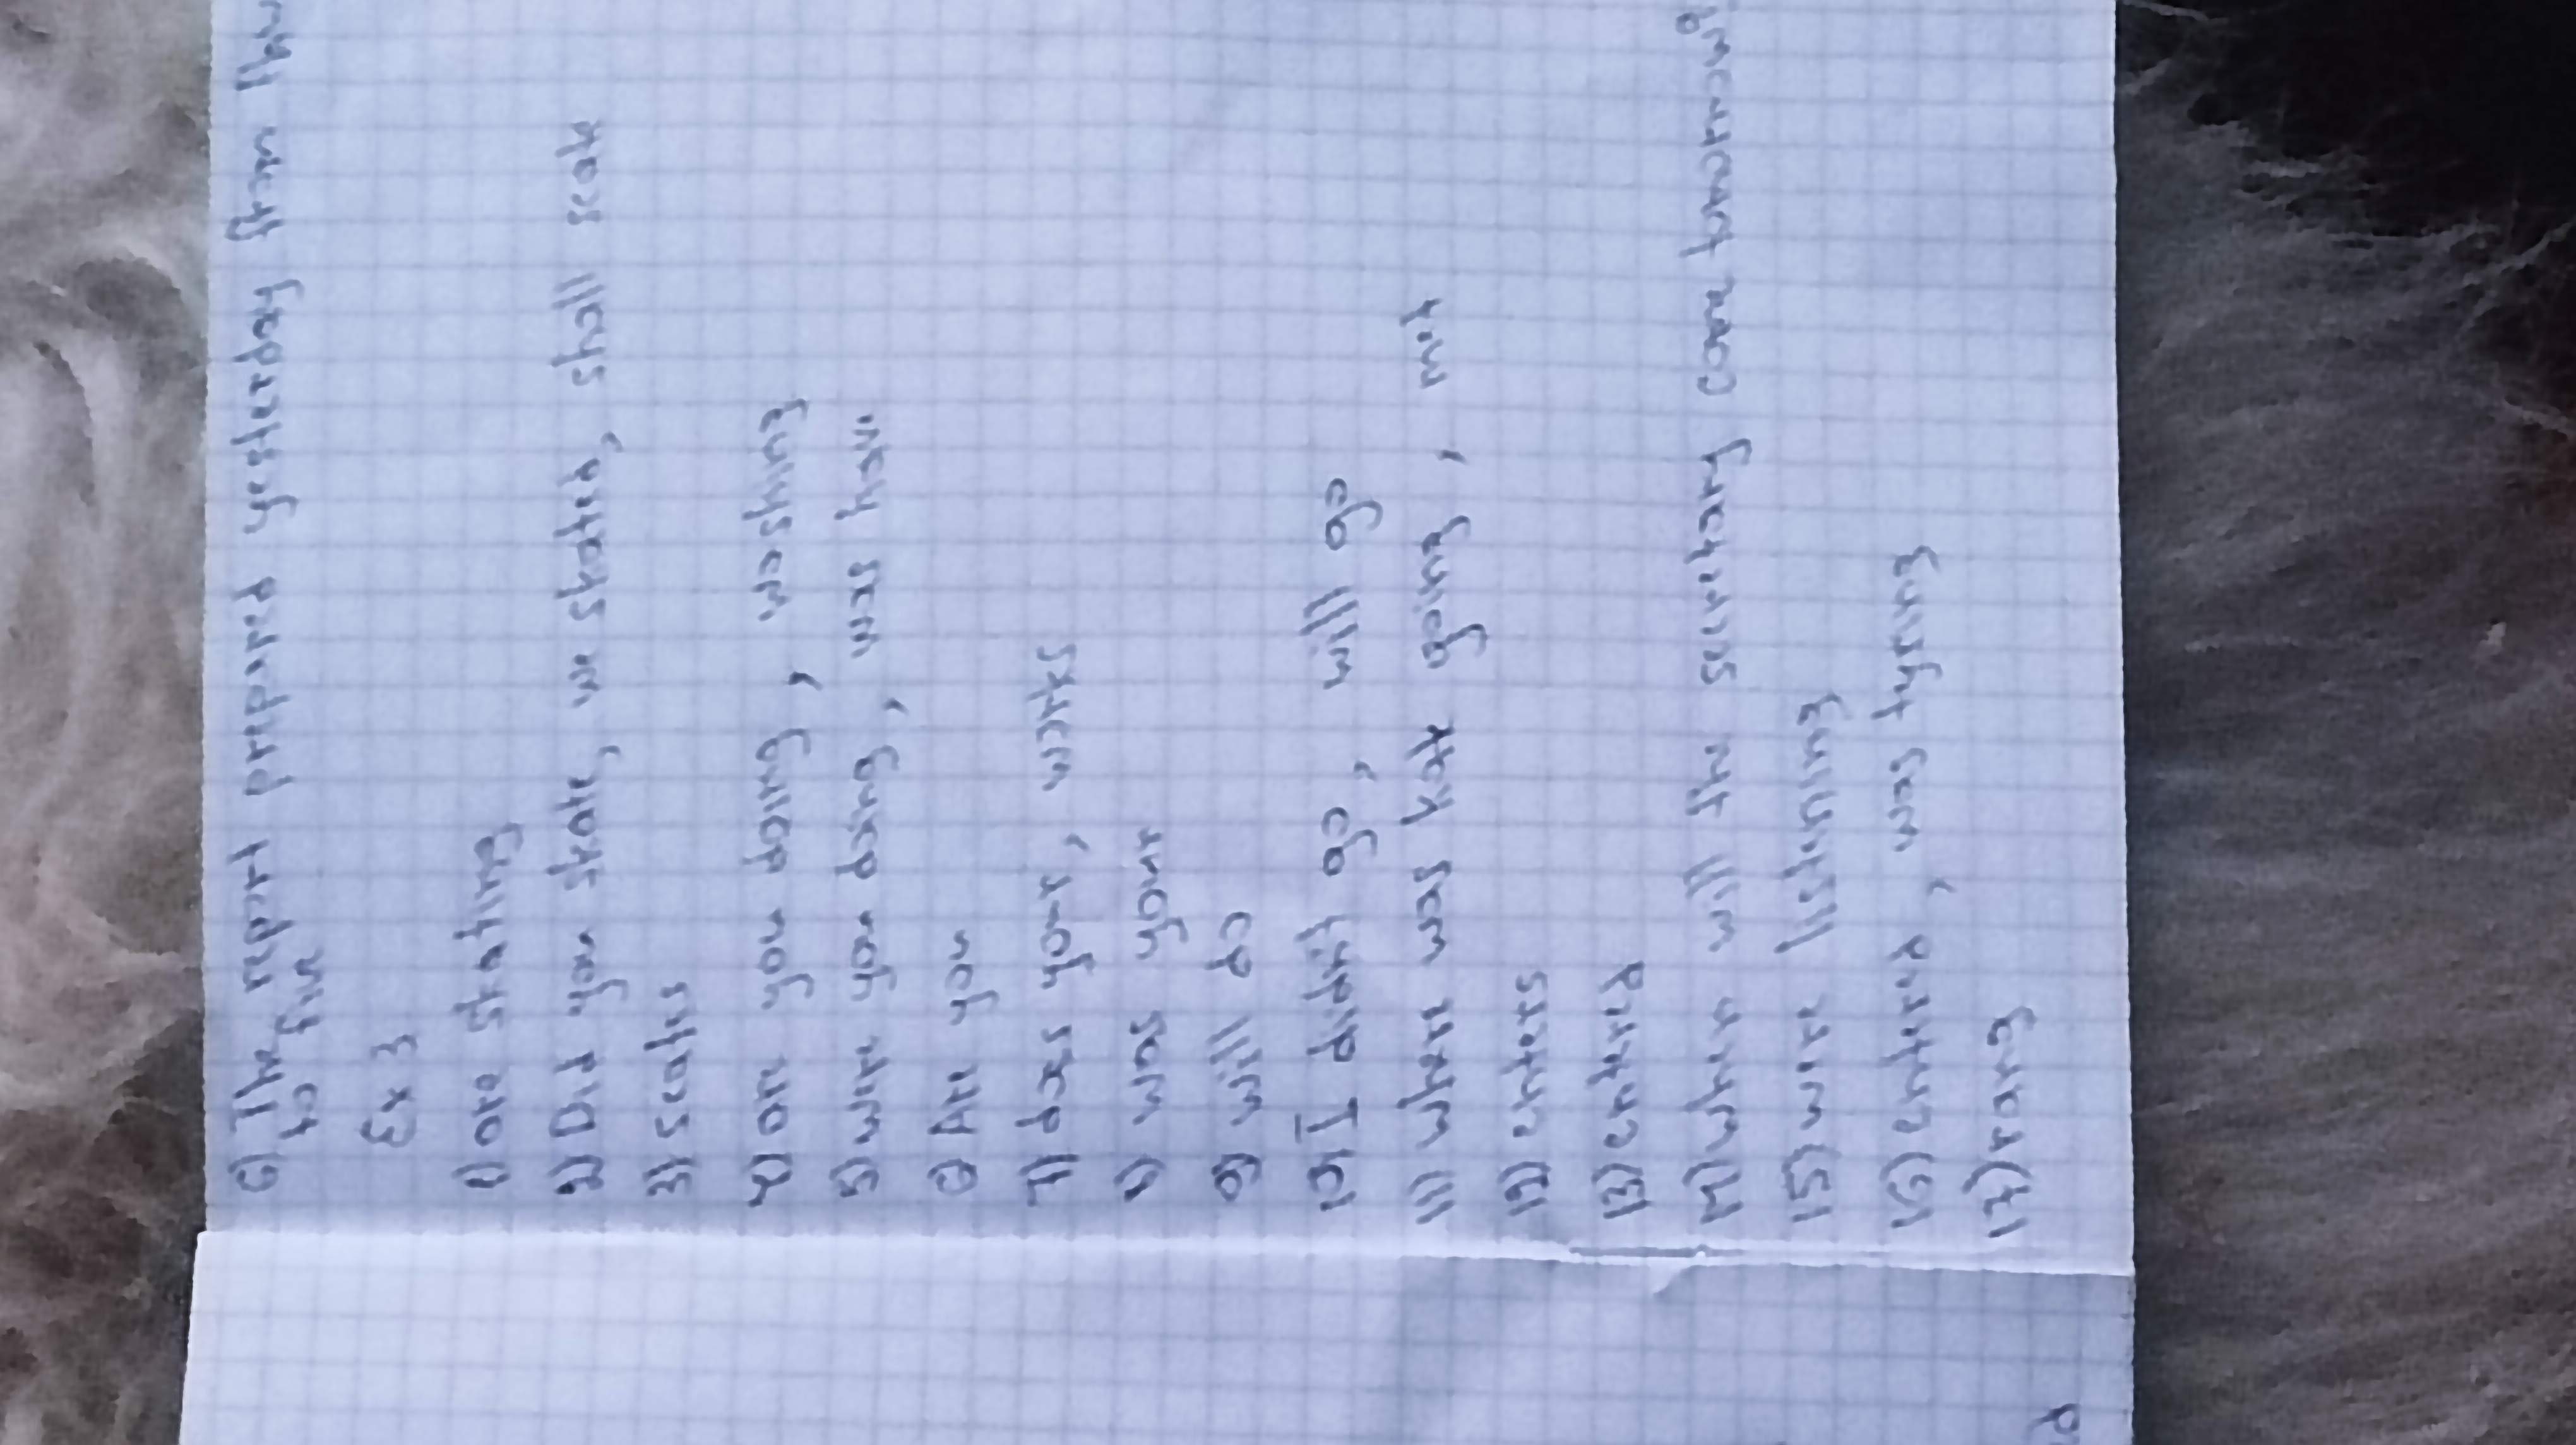 6) The report prepared yesterday from
to five
Ex 3
1) are skating
2) Did you skate, we skated, shall skate
3)
4) are you doing, washing
5) were you doing, was
6) Are you
7) does your, works
was your
9) will do
10) I didn't go, will go
11) when was not going, met
12)
13) entered
14) when will the secretary come tomorrow
15) were listening
16) entered, was tying
17) rang